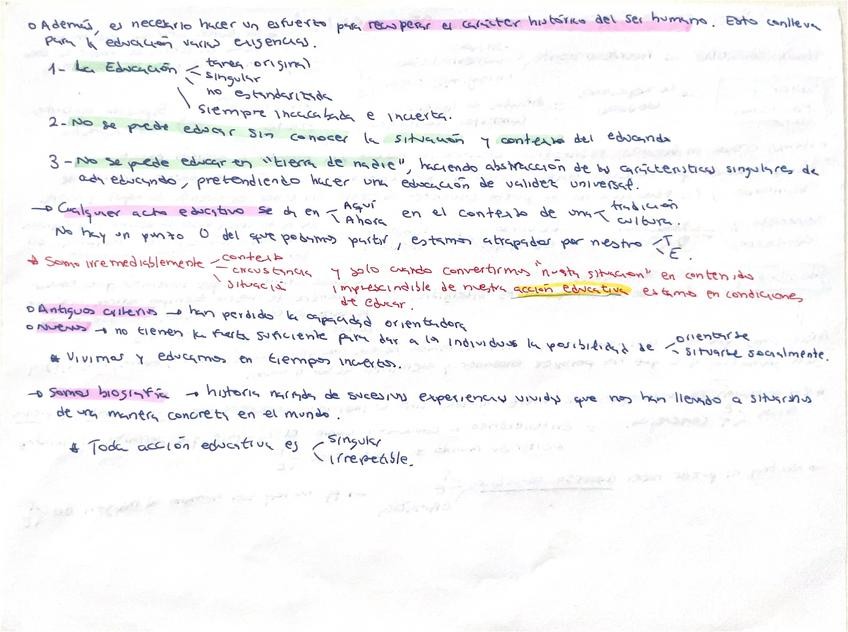 o Además, es necesario hacer un esfuerzo para recuperar el carácter histórico del ser humano. Esto conlleva
para la educación varias exigencias.
1- La Educación
tarea original
singular
no estandarizada
siempre inacabada e incierta.
2- No se puede educar sin conocer la situación y contexto del educando
3- No se puede educar en "tierra de nadie", haciendo abstracción de las características singulares de
cada educando, pretendiendo hacer una educación de validez universal.
→ Cualquier acto educativo se da en
Aquí
Ahora
en el contexto de una
tradición
cultura.
No hay un punto 0 del que podamos partir, estamos atrapados por nuestro
T
E.
* Somos irremediablemente
contexto
circustancia
situación
y solo cuando convertirmos "nuestra situación" en contenido
imprescindible de nuestra acción educativa estamos en condiciones
de educar.
o Antiguos criterios → han perdido la capacidad orientadora
o Nuevos → no tienen la fuerza suficiente para dar a los individuos la posibilidad de
orientarse
situarse socialmente.
* Vivimos y educamos en tiempos inciertos.
→ Somos biografía → historia narrada de sucesivas experiencias vividas que nos han llevado a situarnos
de una manera concreta en el mundo.
* Toda acción educativa es
singular
irrepetible.